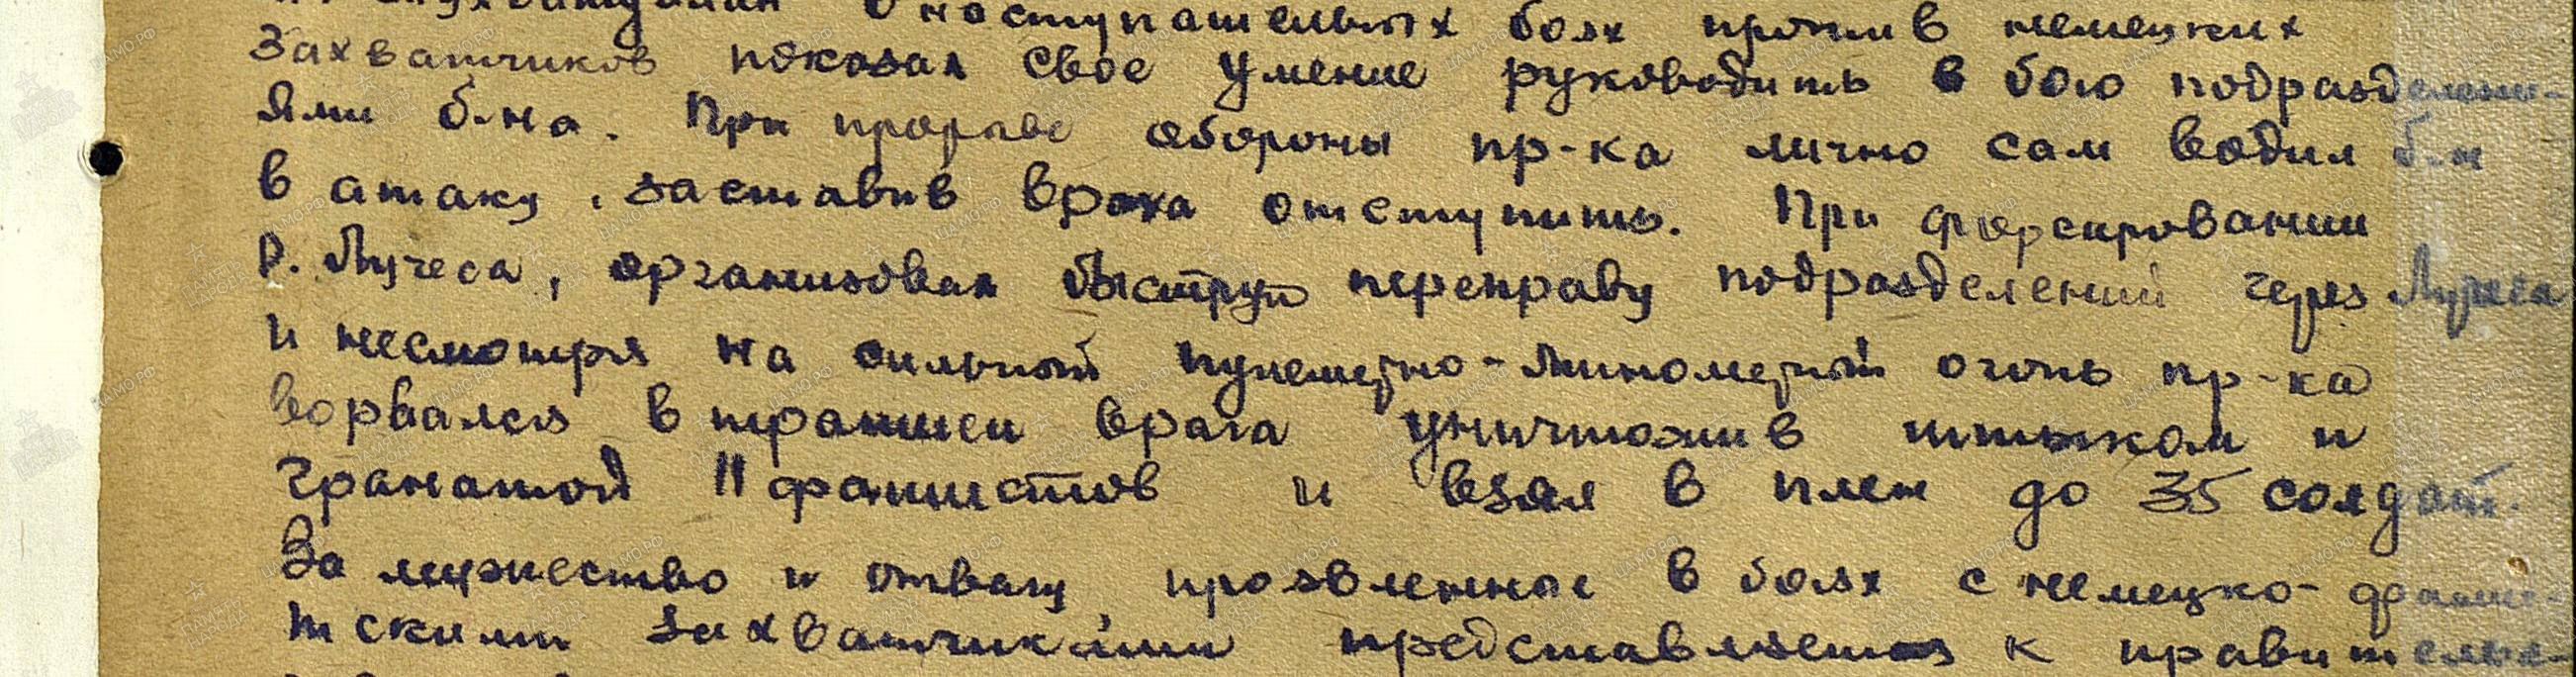 в наступательных боях против немецких
захватчиков показал свое умение руководить в бою подразделени-
ями б-на. При прорыве обороны пр-ка лично сам водил б-н
в атаку, заставив врага отступить. При форсировании
р. Лучеса, организовал быструю переправу подразделений через Лучеса
и несмотря на сильный пулеметно-минометный огонь пр-ка
ворвался в траншеи врага уничтожив штыком и
гранатой 11 фашистов и взял в плен до 35 солдат.
За мужество и отвагу, проявленное в боях с немецко-фашис-
тскими захватчиками представляется к правительс-